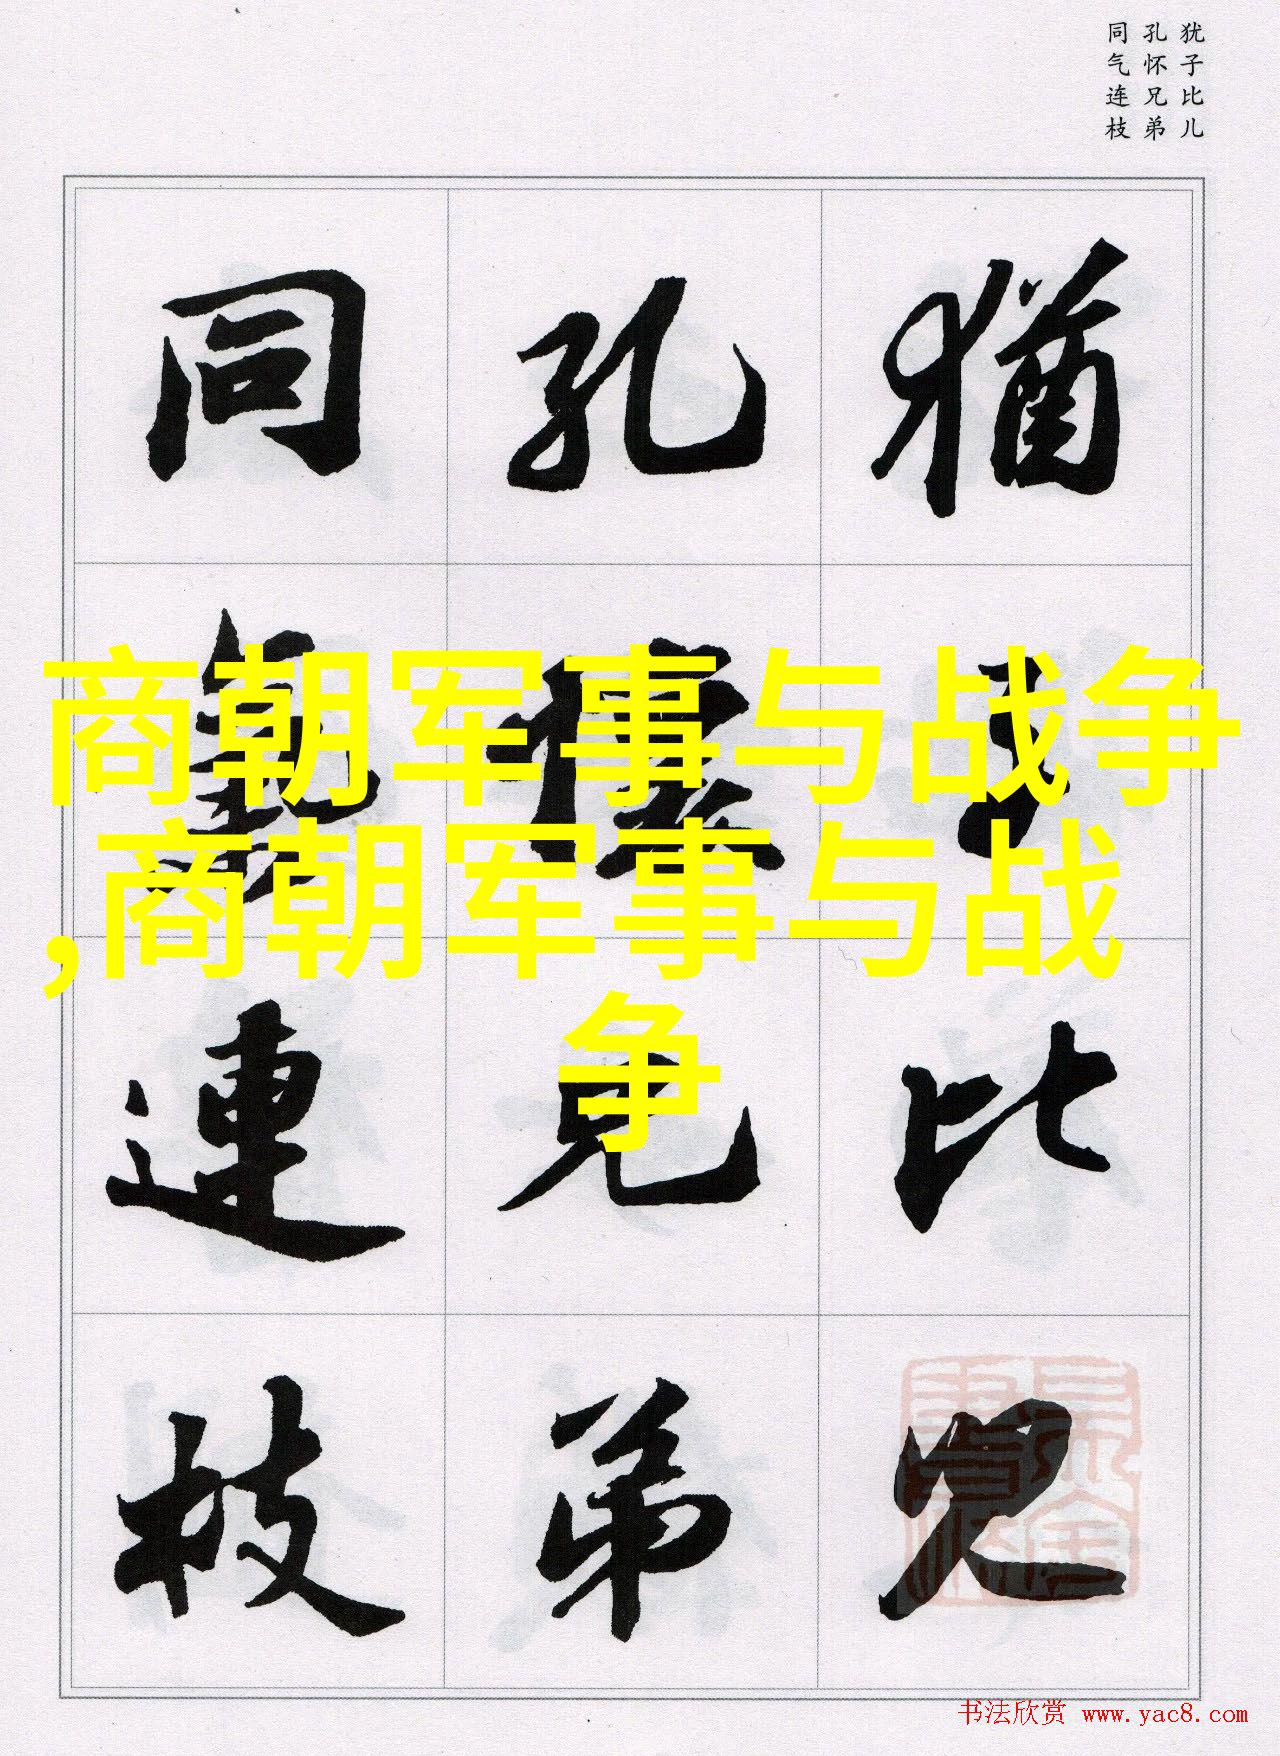 犹子比儿
孔怀兄弟
同气连枝
猶子比兒
孔懷兄弟
同氣連枝
商朝军事与战争
,商朝军事与战
争
书法欣赏 www.yac8.com